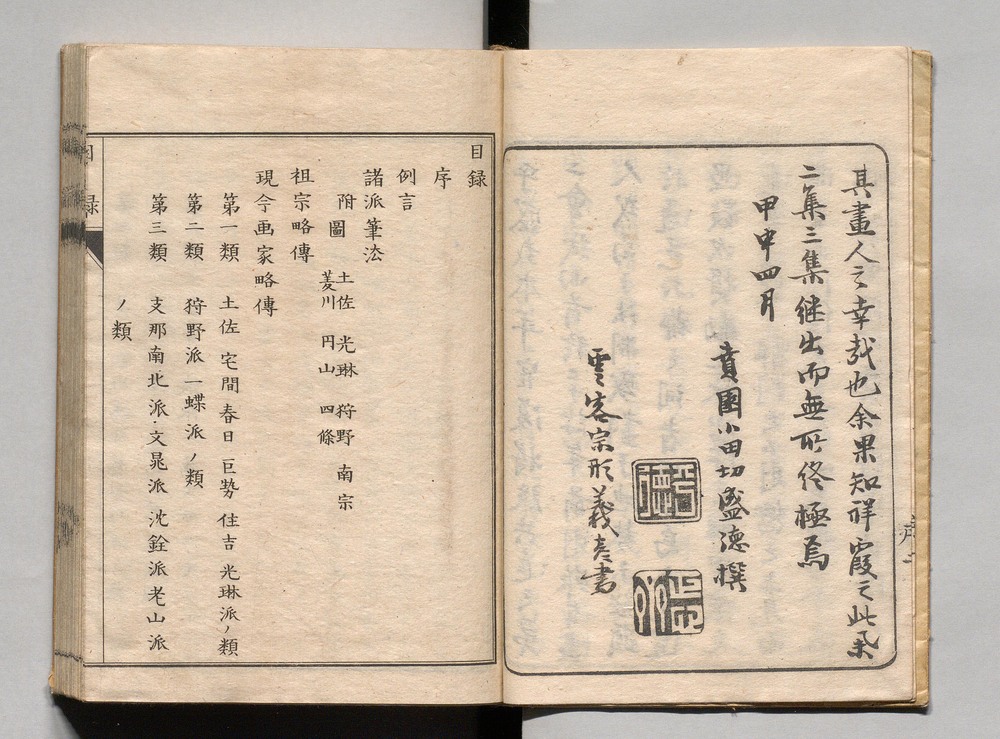 其畫人之幸哉也余果知祥霞之此集
二集三集継出而無所終極焉
甲申四月
賁園小田切盛德撰
雲客宗形義彦書
目録
序
例言
諸派筆法
附圖
土佐 光琳 狩野 南宗
菱川 円山 四條
祖宗略傳
現今画家略傳
第一類 土佐 宅間 春日 巨勢 住吉 光琳派ノ類
第二類 狩野派一蝶派ノ類
第三類 支那南北派·文晁派 沈銓派老山派
ノ類
目録